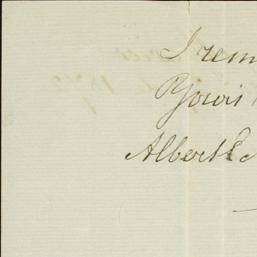 I rem
Yours
Albert E